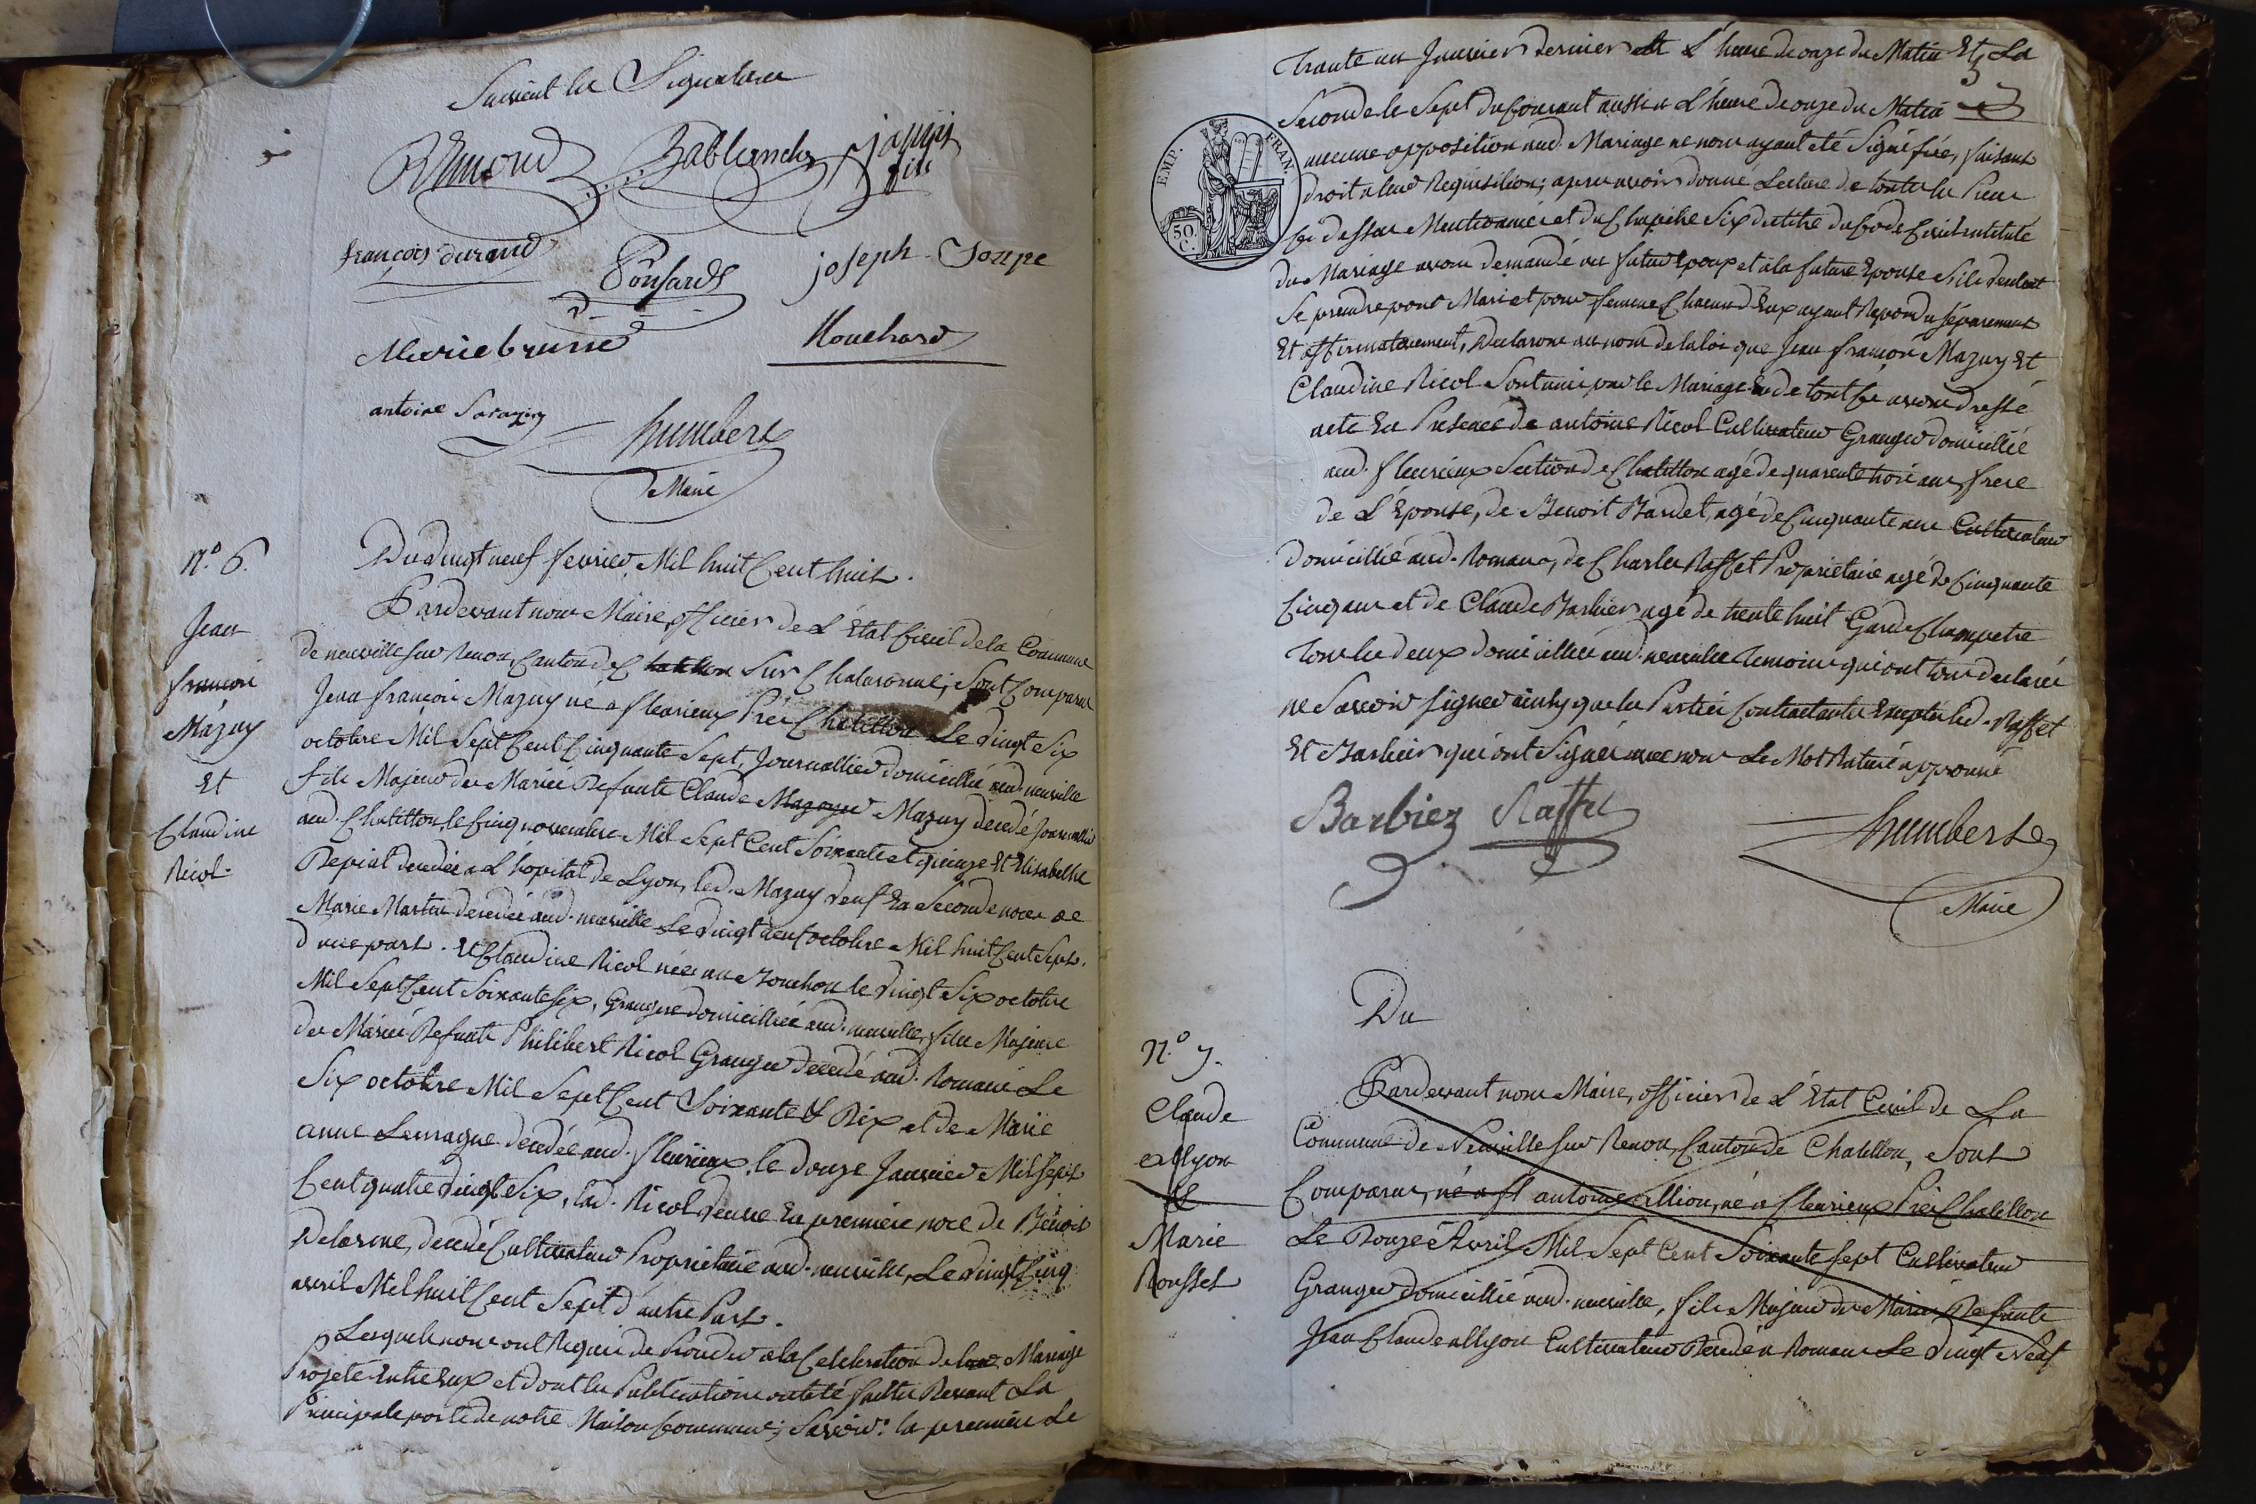 Suivent les Signatures
François Durand
Ponsard
joseph
Marie brune
Mouchard
antoine Sarazin
humbert
Maire
N.º 6.
Jean
françois
Mazuy
Et
Claudine
Nicol.
Du vingt neuf fevrier Mil huit Cent huit.
Pardevant nous Maire, officier de L'État Civil de la Commune
de neuville sur Renon, Canton de Chatillon Sur Chalaronne; Sont Comparus
Jean françois Mazuy né a fleurieux Près Chatillon Le vingt Six
octobre Mil Sept Cent Cinquante Sept, Journallier domicillié aud. neuville
fils Majeur des Mariés Defunts Claude Mazoyer Mazuy décédé Journallier
aud. Chatillon, le Cinq novembre Mil Sept Cent Soixante et quinze Et Elisabethe
décédée a L'hopital de Lyon, led. Mazuy veuf En Seconde noces de
Marie Martin décédée aud. neuville Le vingt octobre Mil huit Cent Sept.
d'une part. Et Claudine Nicol née au Bouchou le vingt Six octobre
Mil Sept Cent Soixante Six, Grangere domicilliée aud. neuville, fille Majeure
des Mariés Defunts Philibert Nicol Granger décédé aud. Romans Le
Six octobre Mil Sept Cent Soixante & Dix, et de Marie
anne décédée aud. fleurieux, le douze Janvier Mil Sept
Cent quatre vingt Six, lad. Nicol veuve En premiere noce de Benoit
Delorme, décédé Cultivateur Proprietaire aud. neuville, Le vingt Cinq
avril Mil huit Cent Sept d'autre Part.
Lesquels nous ont Requis de Proceder a la Celebration de leur Mariage
Projeté Entre Eux et dont les Publications ont été faittes Devant La
Principale porte de notre Maison Commune; Savoir: la premiere Le
Trante un Janvier dernier a L'heure de onze du Matin Et La
Seconde le Sept du Courant aussi a L'heure de onze du Matin
EMP. FRAN.
50. C.
aucune opposition aud. Mariage ne nous ayant été Signifiée, faisant
droit a leur Requisition; apres avoir donné Lecture de toutes les Pieces
Ci dessus Mentionnées et du Chapitre Six du titre du Code Civil intitulé
du Mariage avons demandé au futur Epoux et a la future Epouse S'ils veulent
Se prendre pour Mari et pour femme Chacun d'Eux ayant Repondu séparement
Et affirmativement, Declarons au nom de la loi que Jean françois Mazuy Et
Claudine Nicol Sont unis par le Mariage De tout Ce avons dressé
acte En Presence de antoine Nicol Cultivateur Granger domicillié
aud. fleurieux Section de Chatillon agé de quarente trois ans frere
de L'Epouse, de Benoit Bardet, agé de Cinquante ans Cultivateur
domicillié aud. Romans, de Charles Raffet Proprietaire agé de Cinquante
Cinq ans et de Claude Barbier agé de trente huit Garde Champetre
Tous les deux domicilliés aud. neuville temoins qui ont tous declarés
ne Savoir signer ainsy que les Parties Contractantes Exceptés led. Raffet
Et Barbier qui ont Signés avec nous Le Mot Raturé approuvé
Barbier Raffet
humbert
Maire
Du
N.º 7.
Claude
allyon
&
Marie
Rousset
Pardevant nous Maire, officier de L'État Civil de La
Commune de Neuville sur Renon, Canton de Chatillon, Sont
Comparus, né a fl antoine allion, né a fleurieux Près Chatillon
Le Douze Avril Mil Sept Cent Soixante Sept Cultivateur
Granger domicillié aud. neuville, fils Majeur des Mariés Defunts
Jean Claude allyon Cultivateur Décédé a Romans Le vingt Neuf